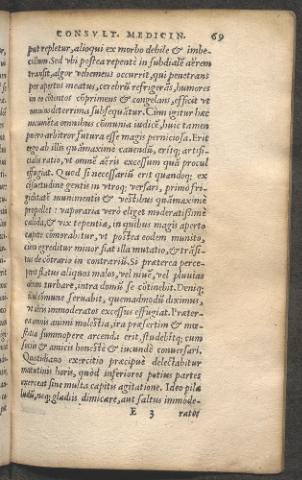 CONSVLT. MEDICIN. 69
put repletur, alioqui ex morbo debile & imbe-
cillum. Sed vbi postea repentè in subdialē aërem
transit, algor vehemens occurrit, qui penetrans
per apertos meatus, cerebrū refrigerās, humores
in eo cōtentos cōprimens & congelans, efficit vt
omnia deterrima subsequātur. Cùm igitur hæc
incuneta omnibus cōmunia iudicē, huic tamen
puero arbitror futura esse magis perniciosa. Erit
ergo ab illis quàmmaximè cauendū, eritq; artifi-
cialis ratio, vt omnē aëris excessum quàm procul
effugiat. Quod si necessariū erit quandoq; ex
cōsuetudine gentis in vtroq; versari, primò fri-
giditatē munimentis & vestibus quàmmaximè
propellet: vaporaria verò eliget moderatissimè
calida, & vix tepentia, in quibus magis aperto
capite commorabitur, vt postea eodem munito,
cùm egreditur minor fiat illa mutatio, & trāsi-
tus de cōtrario in contrariū. Si præterea perce-
perit flatus aliquos malos, vel niuē, vel pluuias
aërem turbare, intra domū se cōtinebit. Deniq;
illud commune seruabit, quemadmodū diximus,
vt aëris immoderatos excessus effugiat. Præter-
ea omnis animi molestia, ira præsertim & mœ-
stitia summopere arcenda erit, studebitq; cum
sociis & amicis honestè & iucundè conuersari.
Quotidiano exercitio præcipuè delectabitur
matutinis horis, quòd inferiores potius partes
exerceat sine multa capitis agitatione. Ideo pilæ
ludū, neq; gladiis dimicare, aut saltus immode-
E 3 ratos